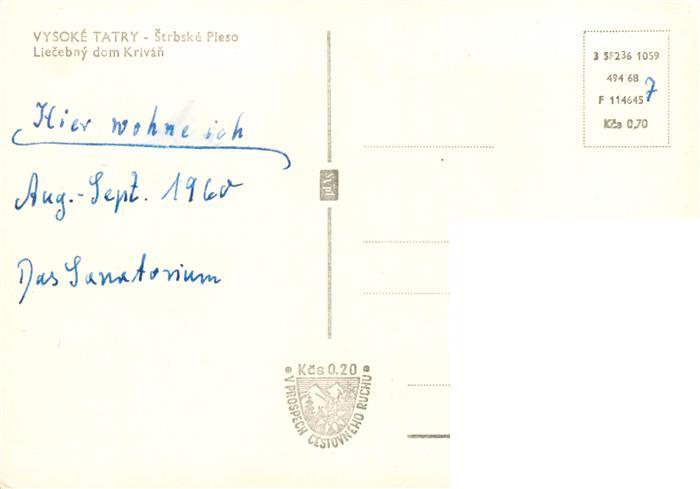 VYSOKÉ TATRY - Štrbské Pleso
Liečebný dom Kriváň
Hier wohne ich
Aug.-Sept. 1960
Das Sanatorium
3 SF236 1059
494 68
F 114645 7
Kčs 0,70
Kčs 0.20
V PROSPECH CESTOVNÉHO RUCHU